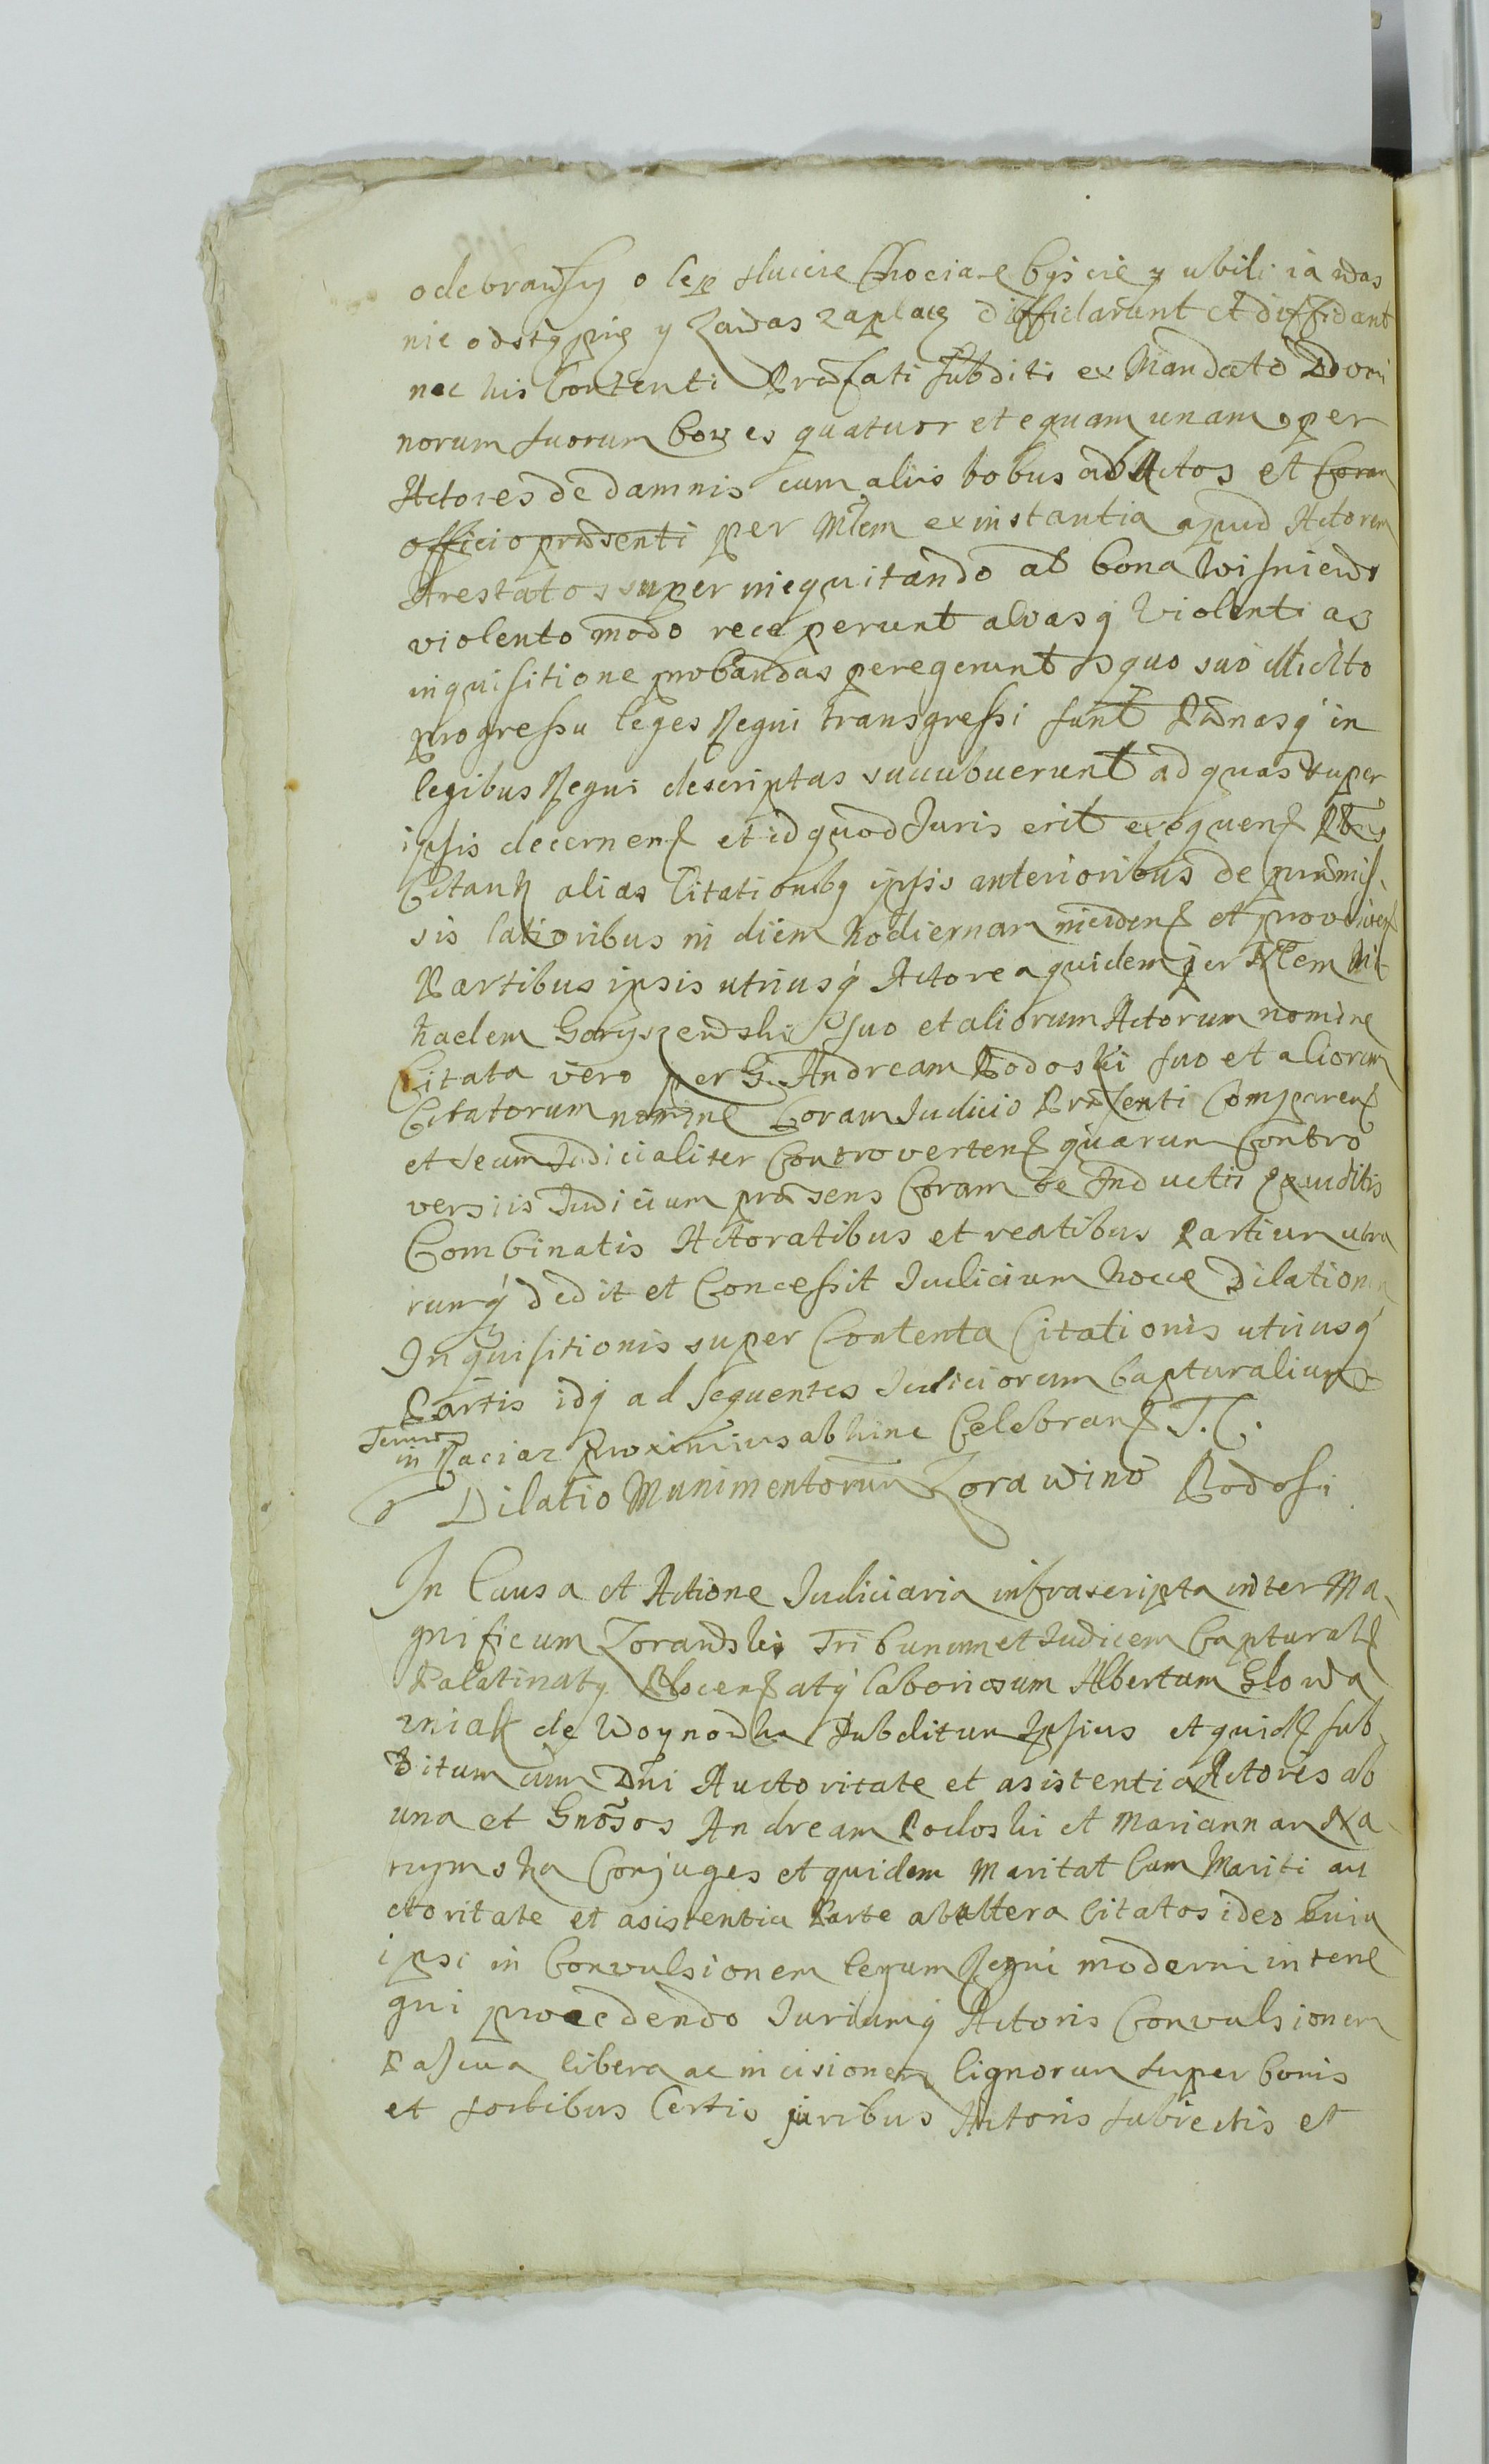 odebrawszy o lep tłuccie Chociasz byscie y ubili ia was
nie odstąpię y zawas zapłacę diffidarunt et diffidant
nec his Contenti Præfati subditi ex Mandato Domi
norum suorum boves quatuor et equam unam per
Actores de damnis cum aliis bobus abactos et Coram
officio præsenti per Mlem ex instantia apud Actorem
Arestatos superinequitando ad bona Wisniewo
violento modo receperunt aliasq violentias
inquisitione probandas peregerunt quo suo illicito
progressu leges Regni transgressi sunt Pænasq in
legibus Regni descriptas succubuerunt ad quas super
ipsis decernen et id quod Juris erit exequen
Citant alias Citationibq ipsis anterioribus de præmis
sis latioribus in diem hodiernam inciden et provenien
Partibus ipsis utriusq Actorea quidem per Mi
haelem Goryszewski suo et aliorum Actorum nomine
Citata vero per G. Andream Podoski suo et aliorum
Citatorum nomine Coram Judicio Præsenti Comparen
et secum Judicialiter Controverten quarum Contro
versiis Judicium præsens Coram se Inductis exauditis
Combinatis Actoratibus et reatibus Partium utra
rumq dedit et Concessit Judicium hocce Dilation
Inquisitionis super Contenta Citationis utriusq
Partis idq ad sequentes Judiciorum Capturalium
Termos
in Raciaz proximius abhinc Celebran T. C.
Dilatio Munimentorum Zorawino Podosÿ
In Causa et Actione Judiciaria infrascripta inter Ma
gnificum Zorawski Tribunum et Judicem Captural
Palatinatq Plocen atq laboriosum Albertum Glowa
zniak de Woynowka Subditum Ipsius et quid sub
ditum cum Dni Auctoritate et asistentia Actores ab
una et Gnosos Andream Podoski et Mariannam Na
rymska Conjuges et quidem Maritat Cum Mariti au
ctoritate et asistentia Parte ab altera Citatos ideo Quia
ipsi in Convulsionem legum Regni moderni interre
gni procedendo Juriumq Actoris Convulsionem
Pascua libera ac incisionem lignorum super bonis
et sortibus Certis juribus Actoris subiectis et